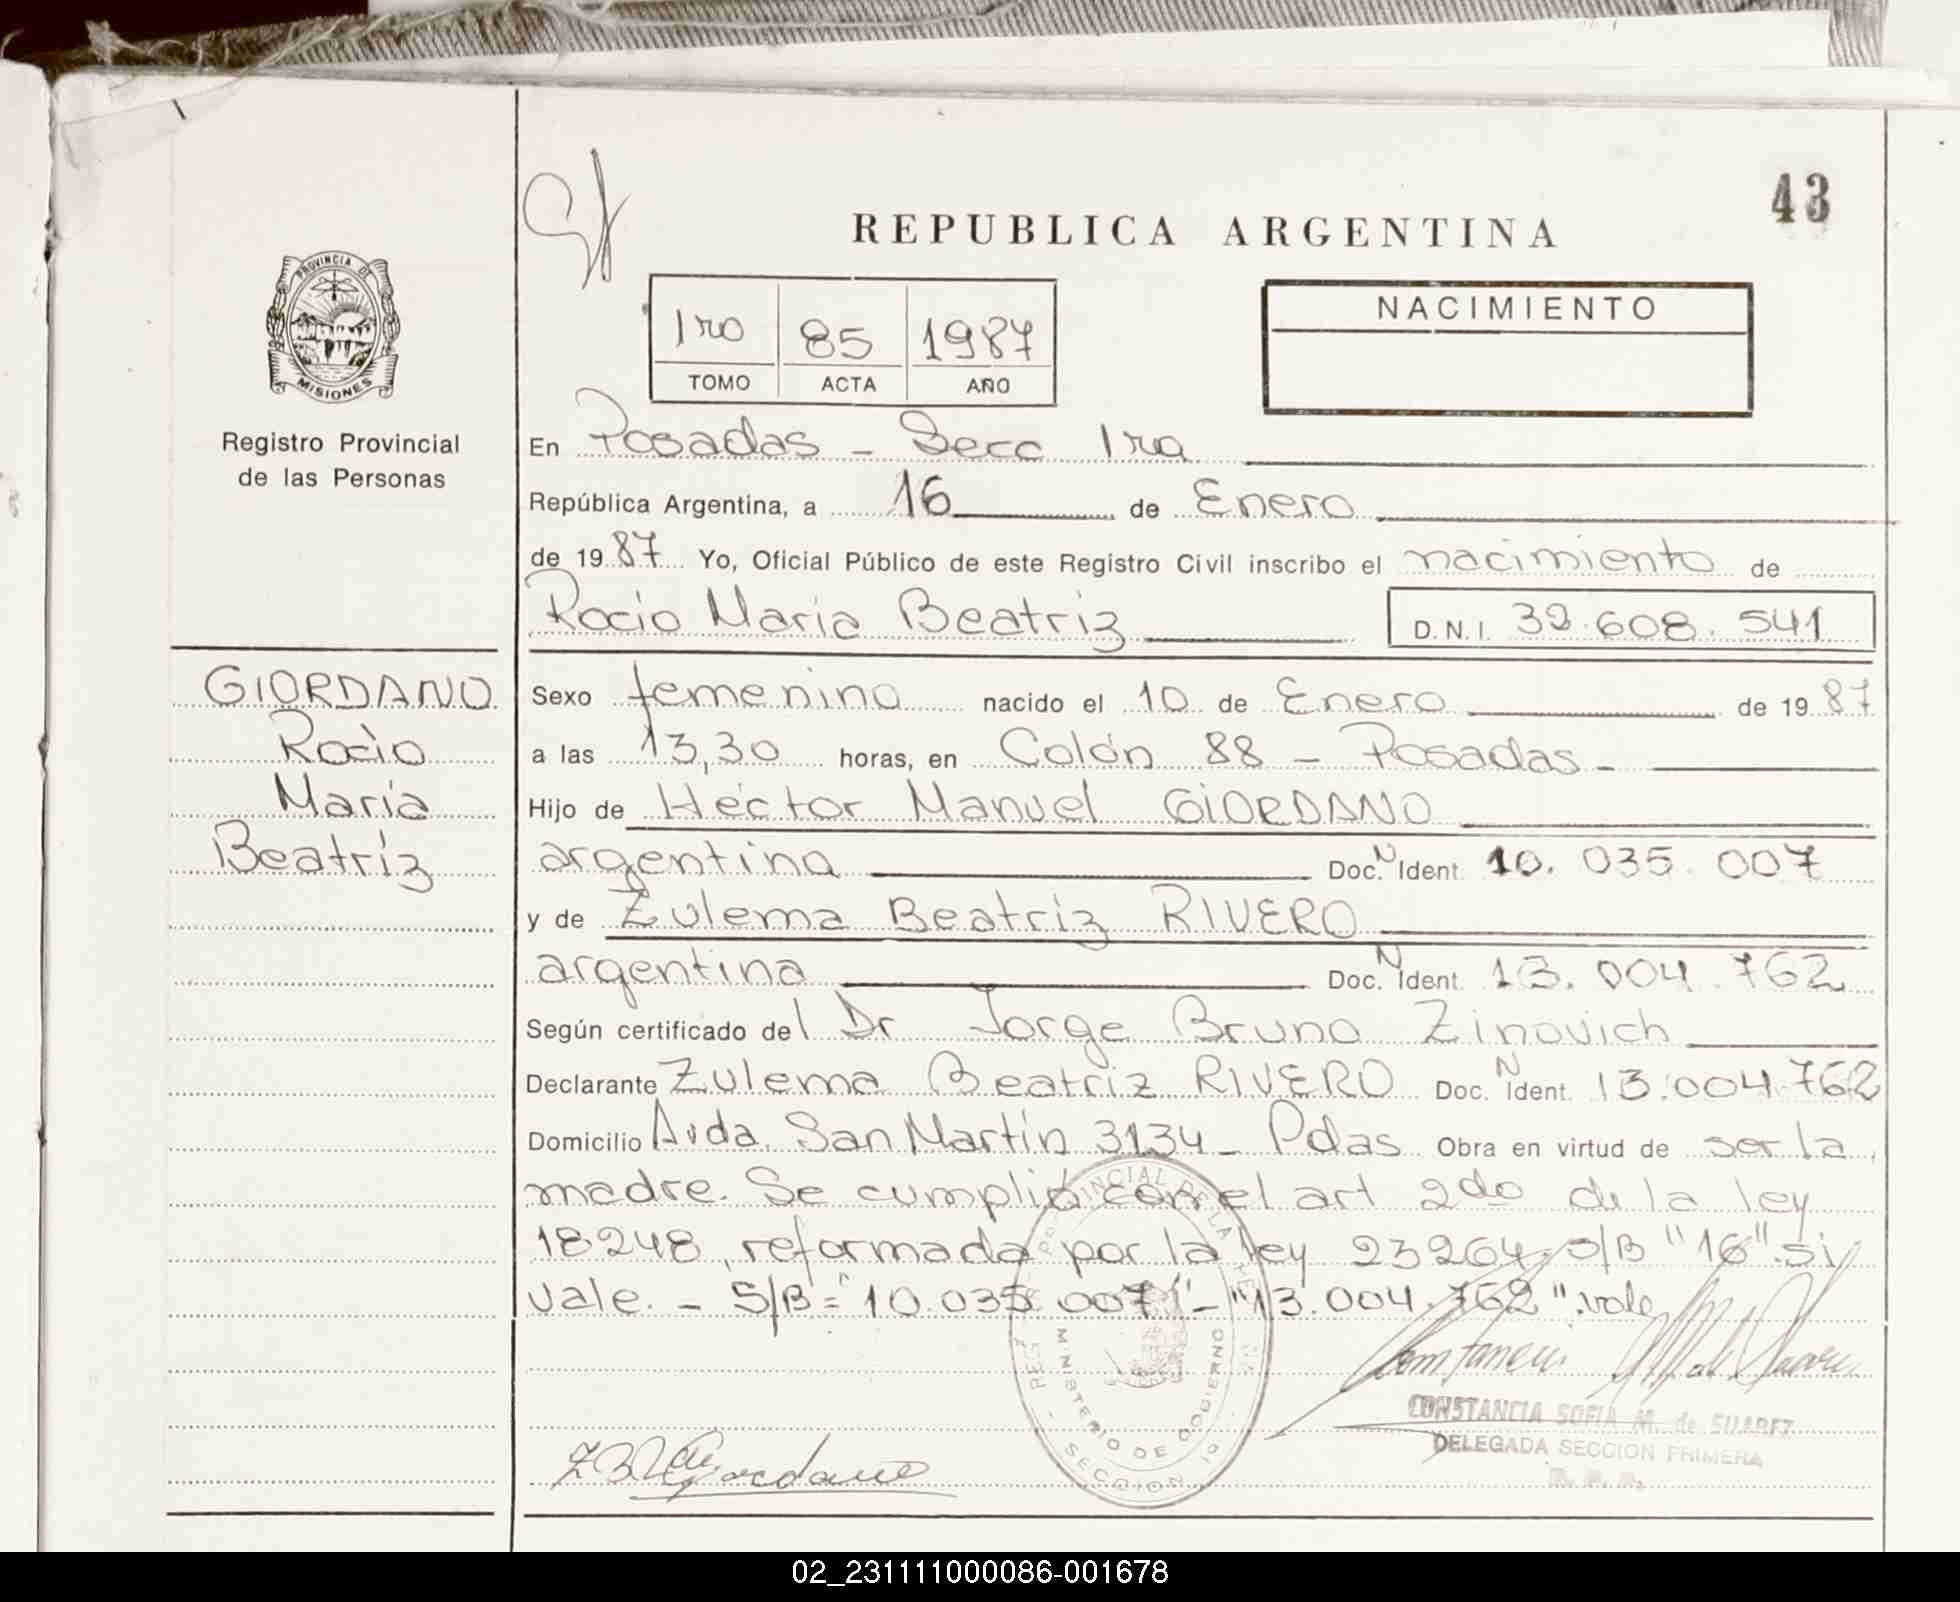 43
REPUBLICA ARGENTINA
PROVINCIA DE
MISIONES
Registro Provincial
de las Personas
1ro 85 1987
TOMO ACTA AÑO
NACIMIENTO
En Posadas - Secc 1ra
República Argentina, a 16 de Enero
de 1987 Yo, Oficial Público de este Registro Civil inscribo el nacimiento de
Rocio Maria Beatriz D.N.I. 32.608.541
GIORDANO
Rocio
María
Beatríz
Sexo femenino nacido el 10 de Enero de 1987
a las 13,30 horas, en Colón 88 - Posadas -
Hijo de Héctor Manuel GIORDANO
argentina Doc. N Ident. 10. 035. 007
y de Zulema Beatríz RIVERO
argentina Doc. N Ident. 13. 004. 762
Según certificado del Dr Jorge Bruno Zinovich
Declarante Zulema Beatriz RIVERO Doc. N Ident. 13.004.762
Domicilio Avda. San Martín 3134 - Pdas Obra en virtud de ser la
madre. Se cumplió con el art 2do de la ley
18248, reformada por la ley 23264. S/B "16". si
vale. - S/B = "10.035.007" - "13.004.762". vale
MINISTERIO DE GOBIERNO
SECCION 1a
CONSTANCIA SOFIA M. de SUAREZ
DELEGADA SECCION PRIMERA
02_231111000086-001678